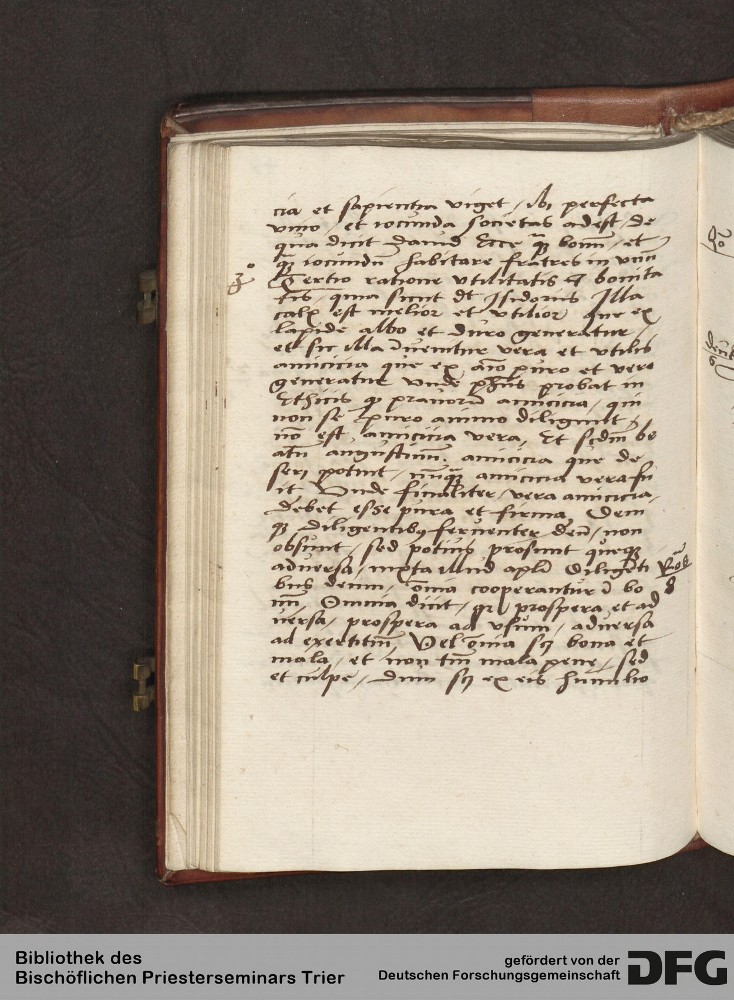 cia et sapientia viget / ibi perfecta
vnio / et iocunda societas adest / de
qua dicit Dauid Ecce qz bonu / et
qz iocundu habitare fratres in vnu
3º
Tertio ratione vtilitatis et bonita
tis / quia sicut dt Isidorus Illa
calx est melior et vtilior que ex
lapide albo et duro generatur /
et sic illa inuenitur vera et vtilis
amicicia que ex aio puro et vero
generatur vnde phus probat in
Ethicis qp prauoru amicicia / qui
non se puro animo diligunt /
no est amicicia vera, Et scdm be
atu augustinum. amicicia que de
seri potuit / nuqz amicicia vera fu
it Vnde finaliter / vera amicicia /
debet esse pura et firma. Dem
qz diligentibus feruenter deu / non
obsunt / sed potius prosunt queqz
aduersa / iuxta illud apli diligeti
Ro. 8
8
bus deum / omia cooperantur i bo
nu, Omnia dicit / qz prospera et ad
uersa / prospera ad vsum / aduersa
ad exercitiu, Vel omia scz bona et
mala / et non tm mala pene / sed
et culpe / dum scz ex eis humilio
Bibliothek des
Bischöflichen Priesterseminars Trier
gefördert von der
Deutschen Forschungsgemeinschaft
DFG